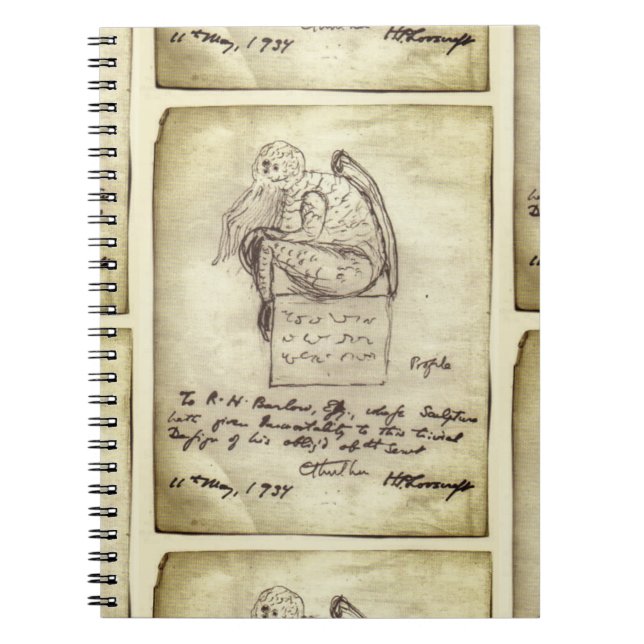 11th May, 1934 HPLovecraft
Profile
To R. H. Barlow, Esq., whose Sculpture
hath given Immortality to this trivial
Design of his oblig'd obt Servt
Cthulhu
11th May, 1934 HPLovecraft